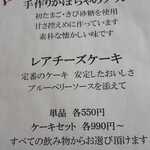 手作りかぼちゃのプリン
初たまご・きび砂糖を使用
甘さ控えめに作っています
素朴な懐かしい味です
レアチーズケーキ
定番のケーキ 安定したおいしさ
ブルーベリーソースを添えて
単品 各550円
ケーキセット 各990円〜
すべての飲み物からお選び頂けます